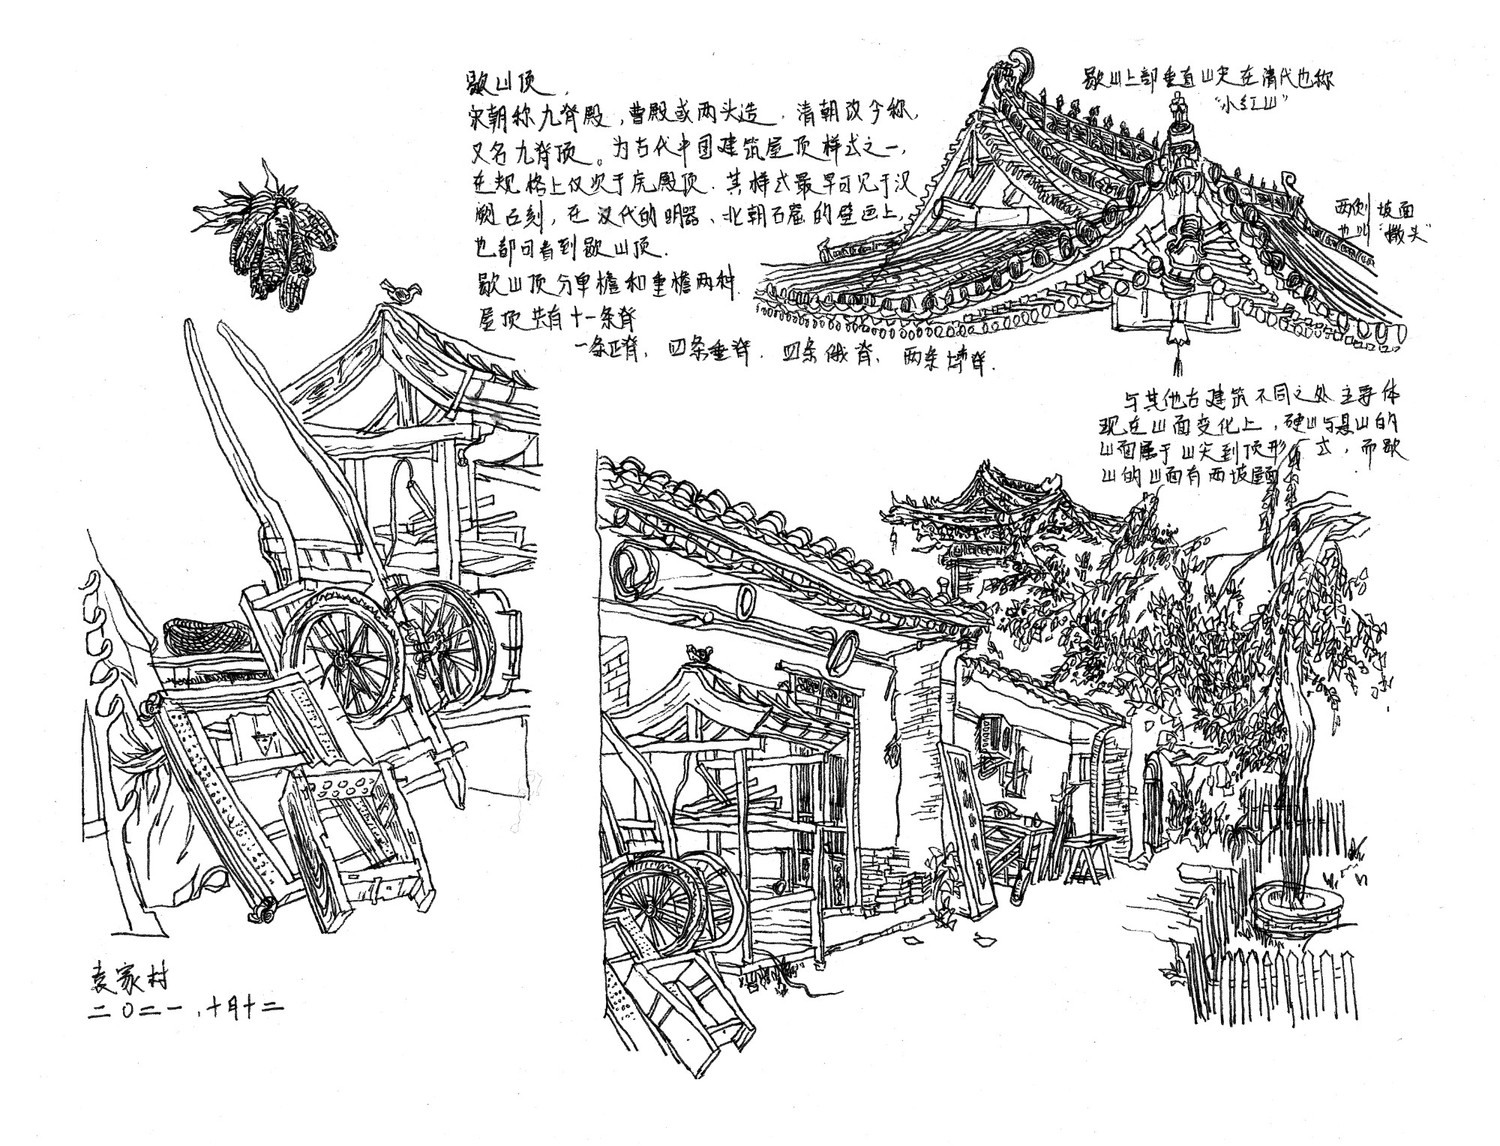 歇山顶,
宋朝称九脊殿,曹殿或两头造,清朝改今称,
又名九脊顶。为古代中国建筑屋顶样式之一,
在规格上仅次于庑殿顶.其样式最早可见于汉
阙石刻,在汉代的明器、北朝石窟的壁画上,
也都可看到歇山顶.
歇山顶分单檐和重檐两种.
屋顶共有十一条脊
一条正脊,四条垂脊,四条戗脊,两条博脊.
歇山上部垂直山尖在清代也称
“小红山”
两侧坡面
也叫“撒头”
与其他古建筑不同之处主要体
现在山面变化上,硬山与悬山的
山面属于山尖到顶形式,而歇
山的山面有两坡屋面
袁家村
二〇二一,十月十二